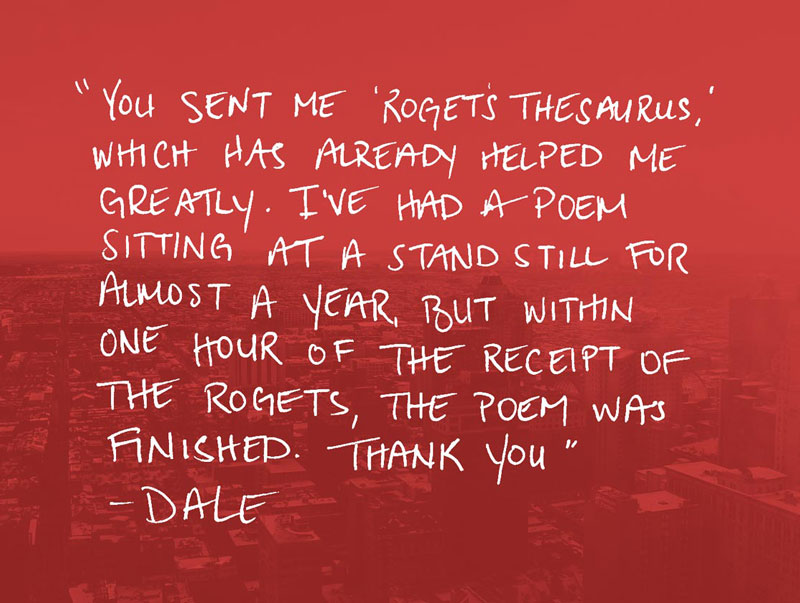 "YOU SENT ME 'ROGET'S THESAURUS,'
WHICH HAS ALREADY HELPED ME
GREATLY. I'VE HAD A POEM
SITTING AT A STAND STILL FOR
ALMOST A YEAR, BUT WITHIN
ONE HOUR OF THE RECEIPT OF
THE ROGETS, THE POEM WAS
FINISHED. THANK YOU"
-DALE